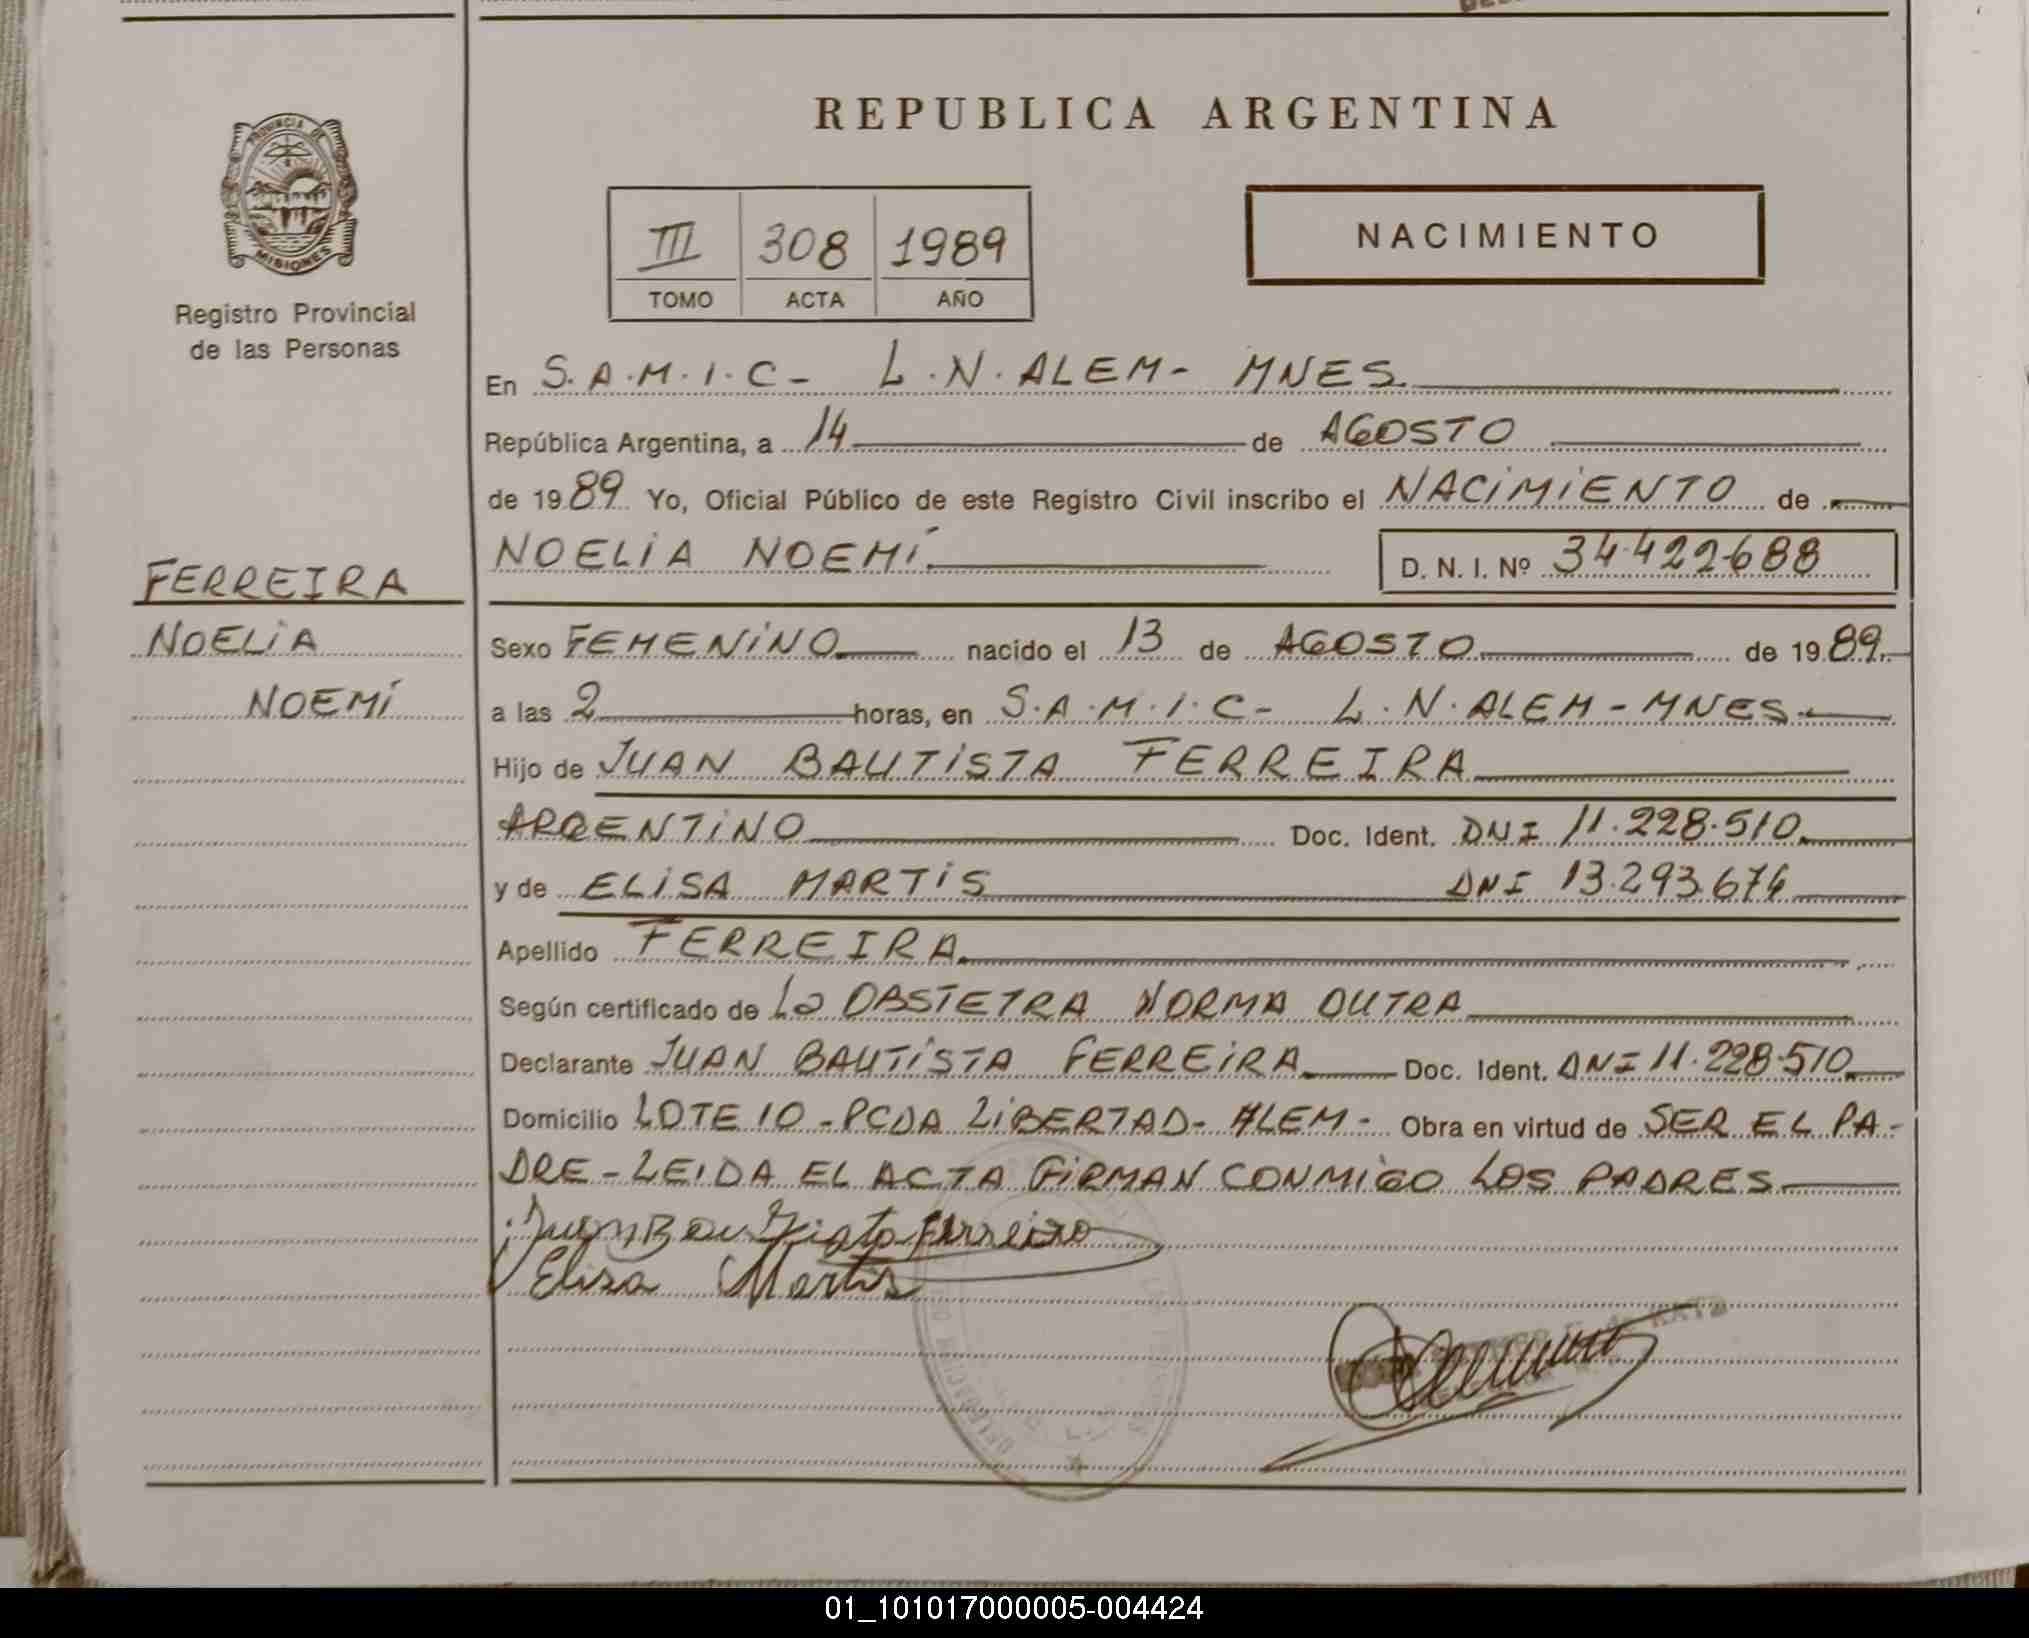 REPUBLICA ARGENTINA
PROVINCIA DE
MISIONES
Registro Provincial
de las Personas
III 308 1989
TOMO ACTA AÑO
NACIMIENTO
En S.A.M.I.C- L.N.ALEM- MNES
República Argentina, a 14 de AGOSTO
de 1989 Yo, Oficial Público de este Registro Civil inscribo el NACIMIENTO de
NOELIA NOEMÍ D. N. I. Nº 34.422.688
FERREIRA
NOELIA
NOEMÍ
Sexo FEMENINO nacido el 13 de AGOSTO de 1989
a las 2 horas, en S.A.M.I.C- L.N.ALEM-MNES
Hijo de JUAN BAUTISTA FERREIRA
ARGENTINO Doc. Ident. DNI 11.228.510
y de ELISA MARTIS DNI 13.293.674
Apellido FERREIRA
Según certificado de La OBSTETRA NORMA DUTRA
Declarante JUAN BAUTISTA FERREIRA Doc. Ident. DNI 11.228.510
Domicilio LOTE 10-PCDA LIBERTAD-ALEM- Obra en virtud de SER EL PA-
DRE-LEIDA EL ACTA FIRMAN CONMIGO LOS PADRES
Juan Bautista Ferreira
Elisa Martis
01_101017000005-004424